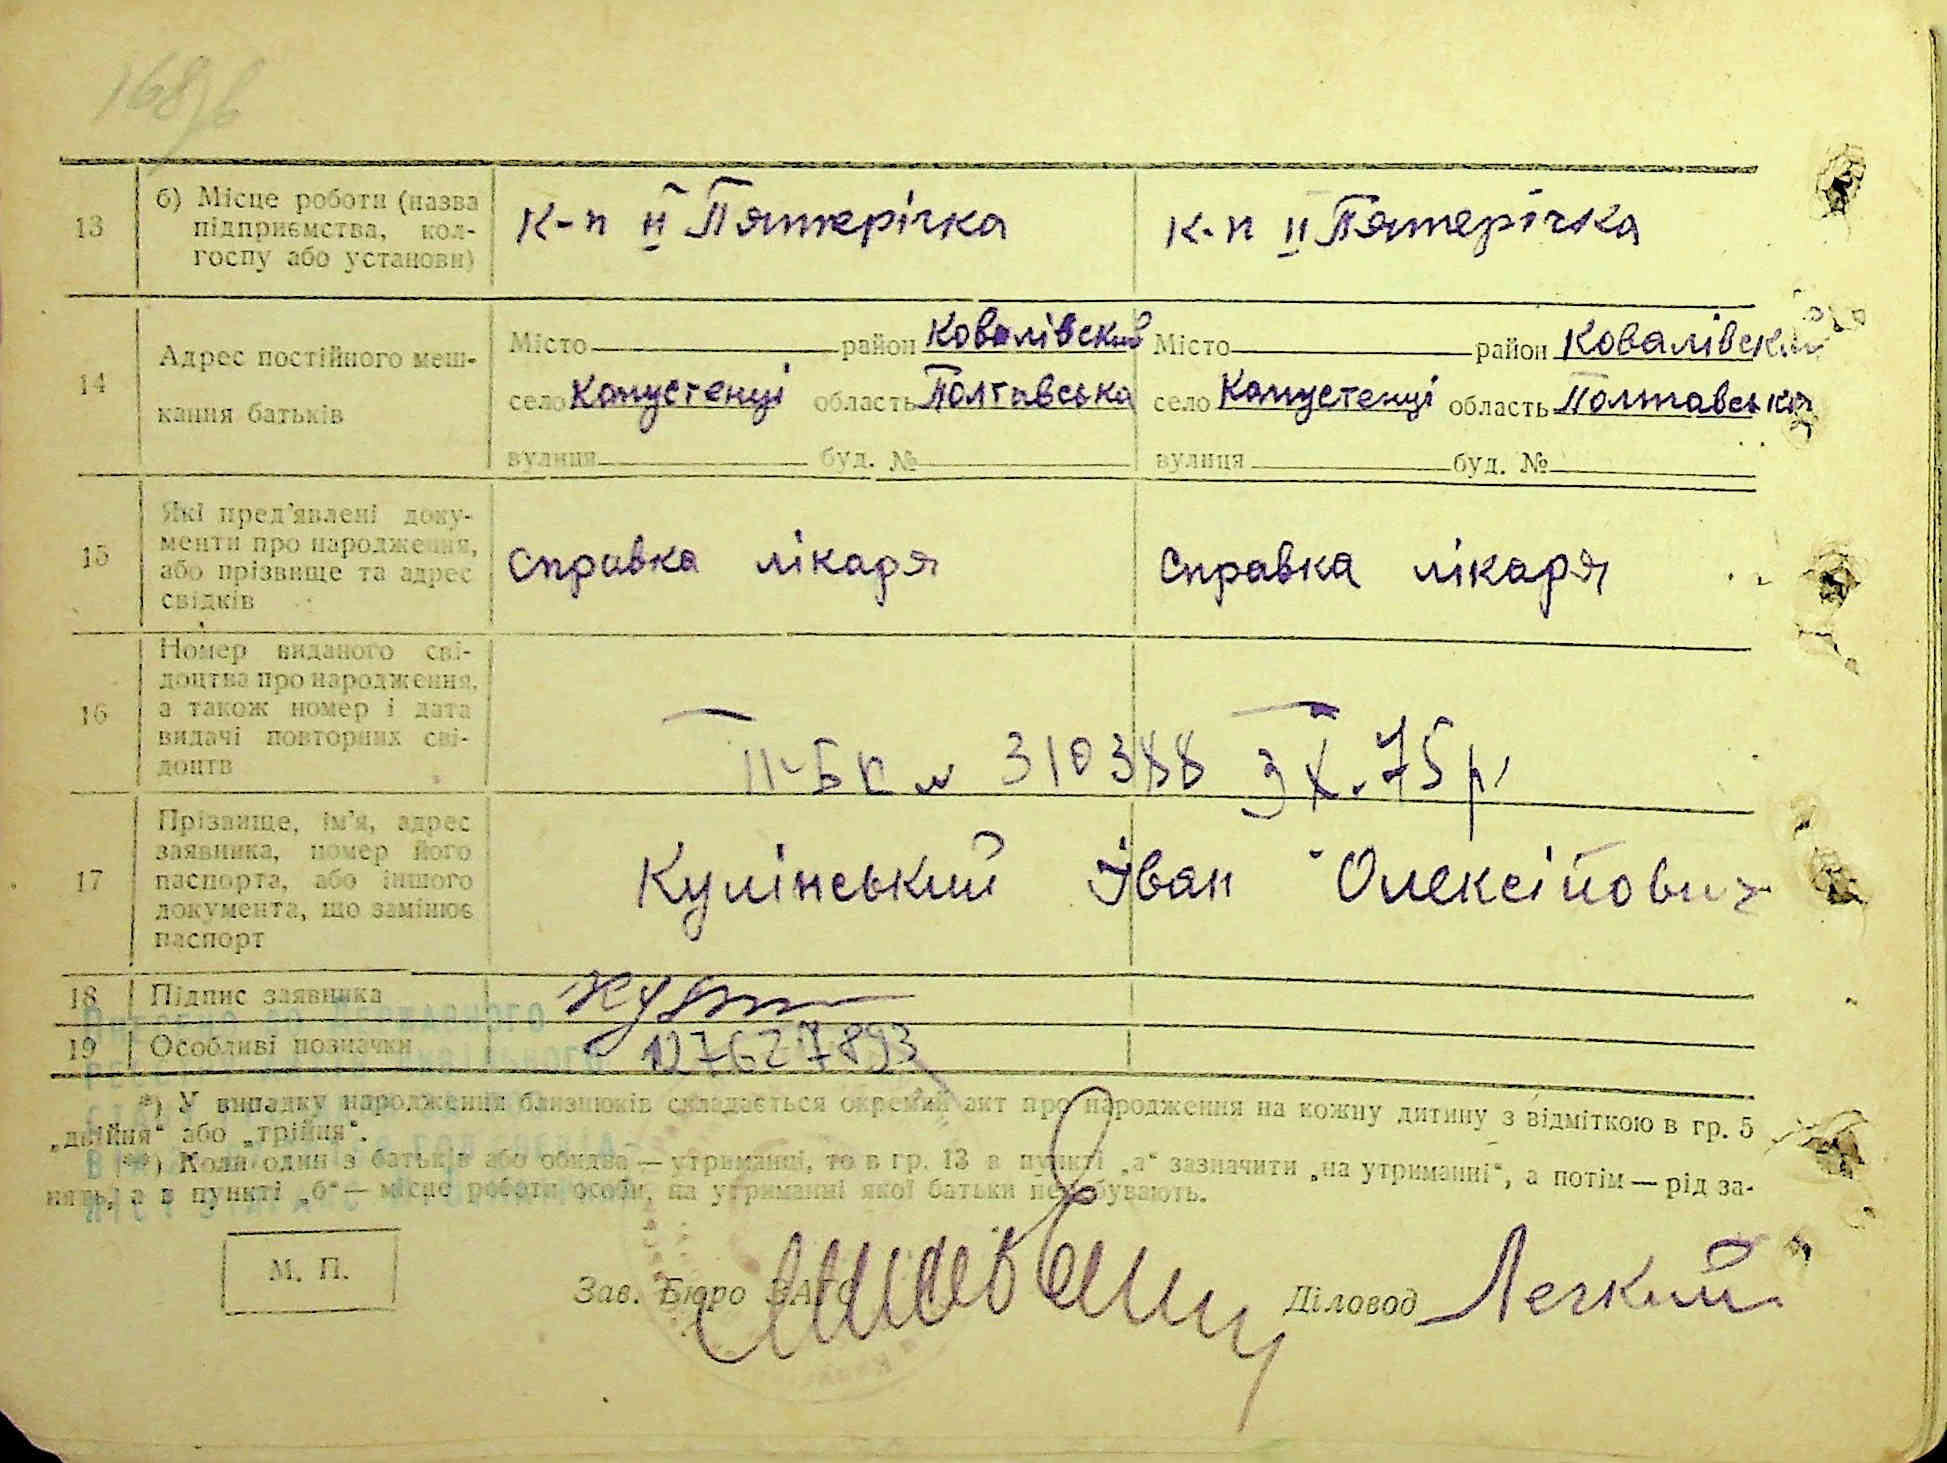 168/6
13
б) Місце роботи (назва
підприємства, кол-
госпу або установи)
к-п II Пятерічка
к-п II Пятерічка
14
Адрес постійного меш-
кання батьків
Місто район Ковалівский
село Копустенці область Полтавська
вулиця буд. №
Місто район Ковалівский
село Копустенці область Полтавська
вулиця буд. №
15
Які пред'явлені доку-
менти про народження,
або прізвище та адрес
свідків
Справка лікаря
Справка лікаря
16
Номер виданого сві-
доцтва про народження,
а також номер і дата
видачі повторних сві-
доцтв
II-БК № 310388 3 X. 75 р.
17
Прізвище, ім'я, адрес
заявника, номер його
паспорта, або іншого
документа, що замінює
паспорт
Кулінський Іван Олексійович
18
Підпис заявника
19
Особливі позначки
127627893
*) У випадку народження близнюків складається окремий акт про народження на кожну дитину з відміткою в гр. 5
„двійня“ або „трійня“.
**) Коли один з батьків або обидва — утриманці, то в гр. 13 в пункті „а“ зазначити „на утриманні“, а потім — рід за-
нять, а в пункті „б“ — місце роботи особи, на утриманні якої батьки перебувають.
М. П.
Зав. Бюро ЗАГС
Діловод Легкий